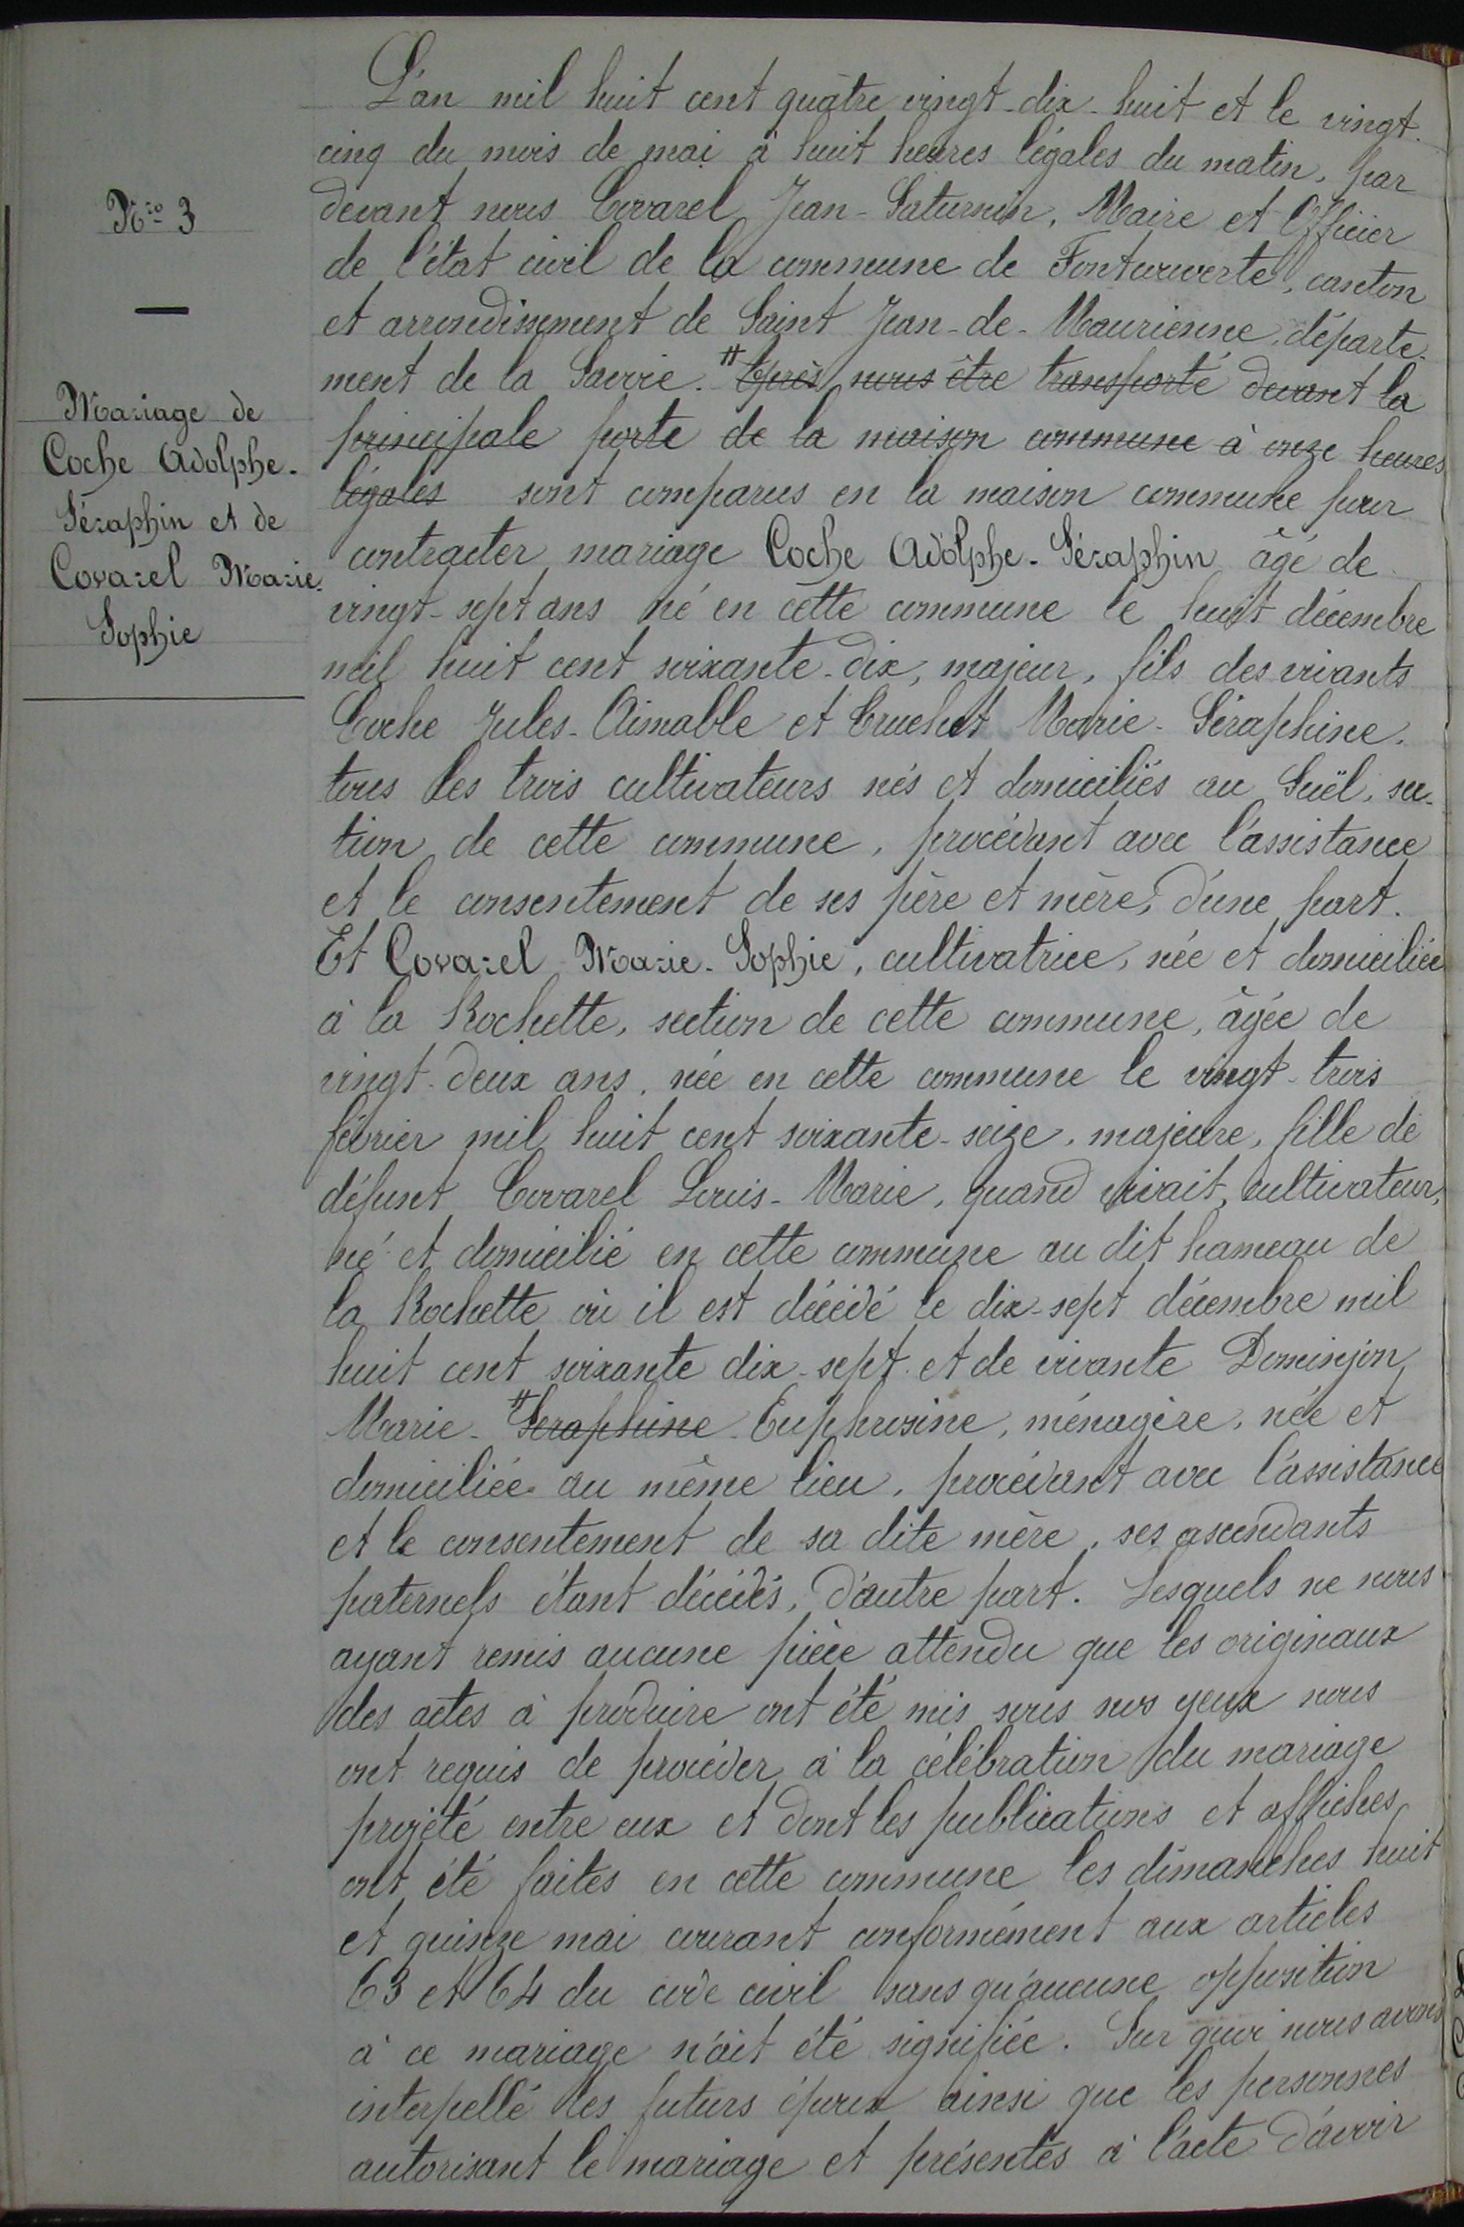 Nro 3
Mariage de
Coche Adolphe-
Séraphin et de
Covarel Marie-
Sophie
L'an mil huit cent quatre vingt-dix-huit et le vingt-
cinq du mois de mai à huit heures légales du matin, par
devant nous Covarel Jean-Saturnin, Maire et Officier
de l'état civil de la commune de Fontcouverte, canton
et arrondissement de Saint Jean-de-Maurienne, départe-
ment de la Savoie. # Après nous être transporté devant la
principale porte de la maison commune à onze heures
légales sont comparus en la maison commune pour
contracter mariage Coche Adolphe-Séraphin âgé de
vingt-sept ans né en cette commune le huit décembre
mil huit cent soixante-dix, majeur, fils des vivants
Coche Jules-Aimable et Cruchet Marie-Séraphine.
tous les trois cultivateurs nés et domiciliés au Suël, sec-
tion de cette commune, procédant avec l'assistance
et le consentement de ses père et mère, d'une part.
Et Covarel Marie-Sophie, cultivatrice, née et domiciliée
à la Rochette, section de cette commune, âgée de
vingt-deux ans, née en cette commune le vingt-trois
février mil huit cent soixante-seize, majeure, fille de
défunt Covarel Louis-Marie, quand vivait, cultivateur,
né et domicilié en cette commune au dit hameau de
la Rochette où il est décédé le dix-sept décembre mil
huit cent soixante dix-sept et de vivante Dominjon
Marie-# Seraphine Euphrosine, ménagère, née et
domiciliée au même lieu, procédant avec l'assistance
et le consentement de sa dite mère, ses ascendants
paternels étant décédés, d'autre part. Lesquels ne nous
ayant remis aucune pièce attendu que les originaux
des actes à produire ont été mis sous nos yeux nous
ont requis de procéder à la célébration du mariage
projeté entre eux et dont les publications et affiches
ont été faites en cette commune les dimanches huit
et quinze mai courant conformément aux articles
63 et 64 du code civil sans qu'aucune opposition
à ce mariage n'ait été signifiée. Sur quoi nous avons
interpellé les futurs époux ainsi que les personnes
autorisant le mariage et présentes à l'acte d'avoir